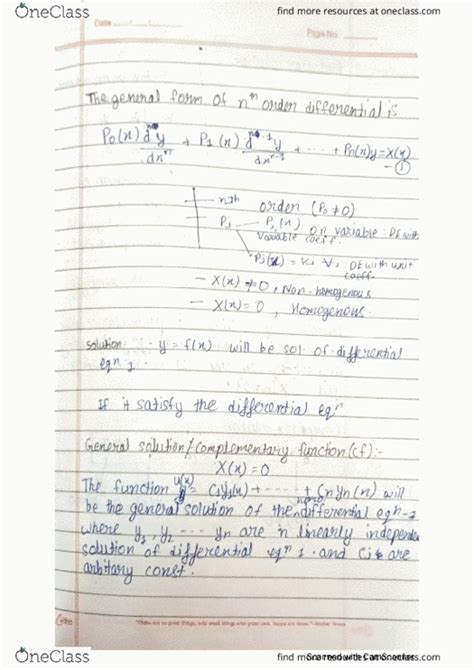 OneClass
find more resources at oneclass.com
Date
Page No.
The general form of nth order differential is
P0(x) d^n y/dx^n + P1(x) d^n-1 y/dx^n-1 + ---- + Pn(x)y=X(x)
—①
nth order (P0≠0)
Pj — Pj(x) on variable : DE with
variable coeff.
Pj(x) = K, ∀j DE with unit
coeff.
— X(x) ≠0, Non-homogenous
— X(x)=0, Homogenous.
solution: y = f(x) will be sol. of differential
eqn 1.
If it satisfy the differential eqn
General solution/Complementary function (cf) :-
X(x)=0
The function u(x) = C1y1(x)+-----+ Cnyn(x) will
be the general solution of the homo differential eqn-1
where y1, y2 --- yn are n linearly independ
solution of differential eqn 1. and Ci's are
arbitary const.
OneClass
find more resources at oneclass.com
Scanned with CamScanner